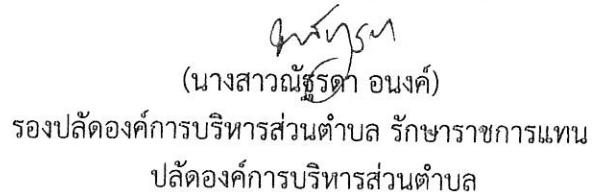 (นางสาวณัฐรดา อนงค์)
รองปลัดองค์การบริหารส่วนตำบล รักษาราชการแทน
ปลัดองค์การบริหารส่วนตำบล